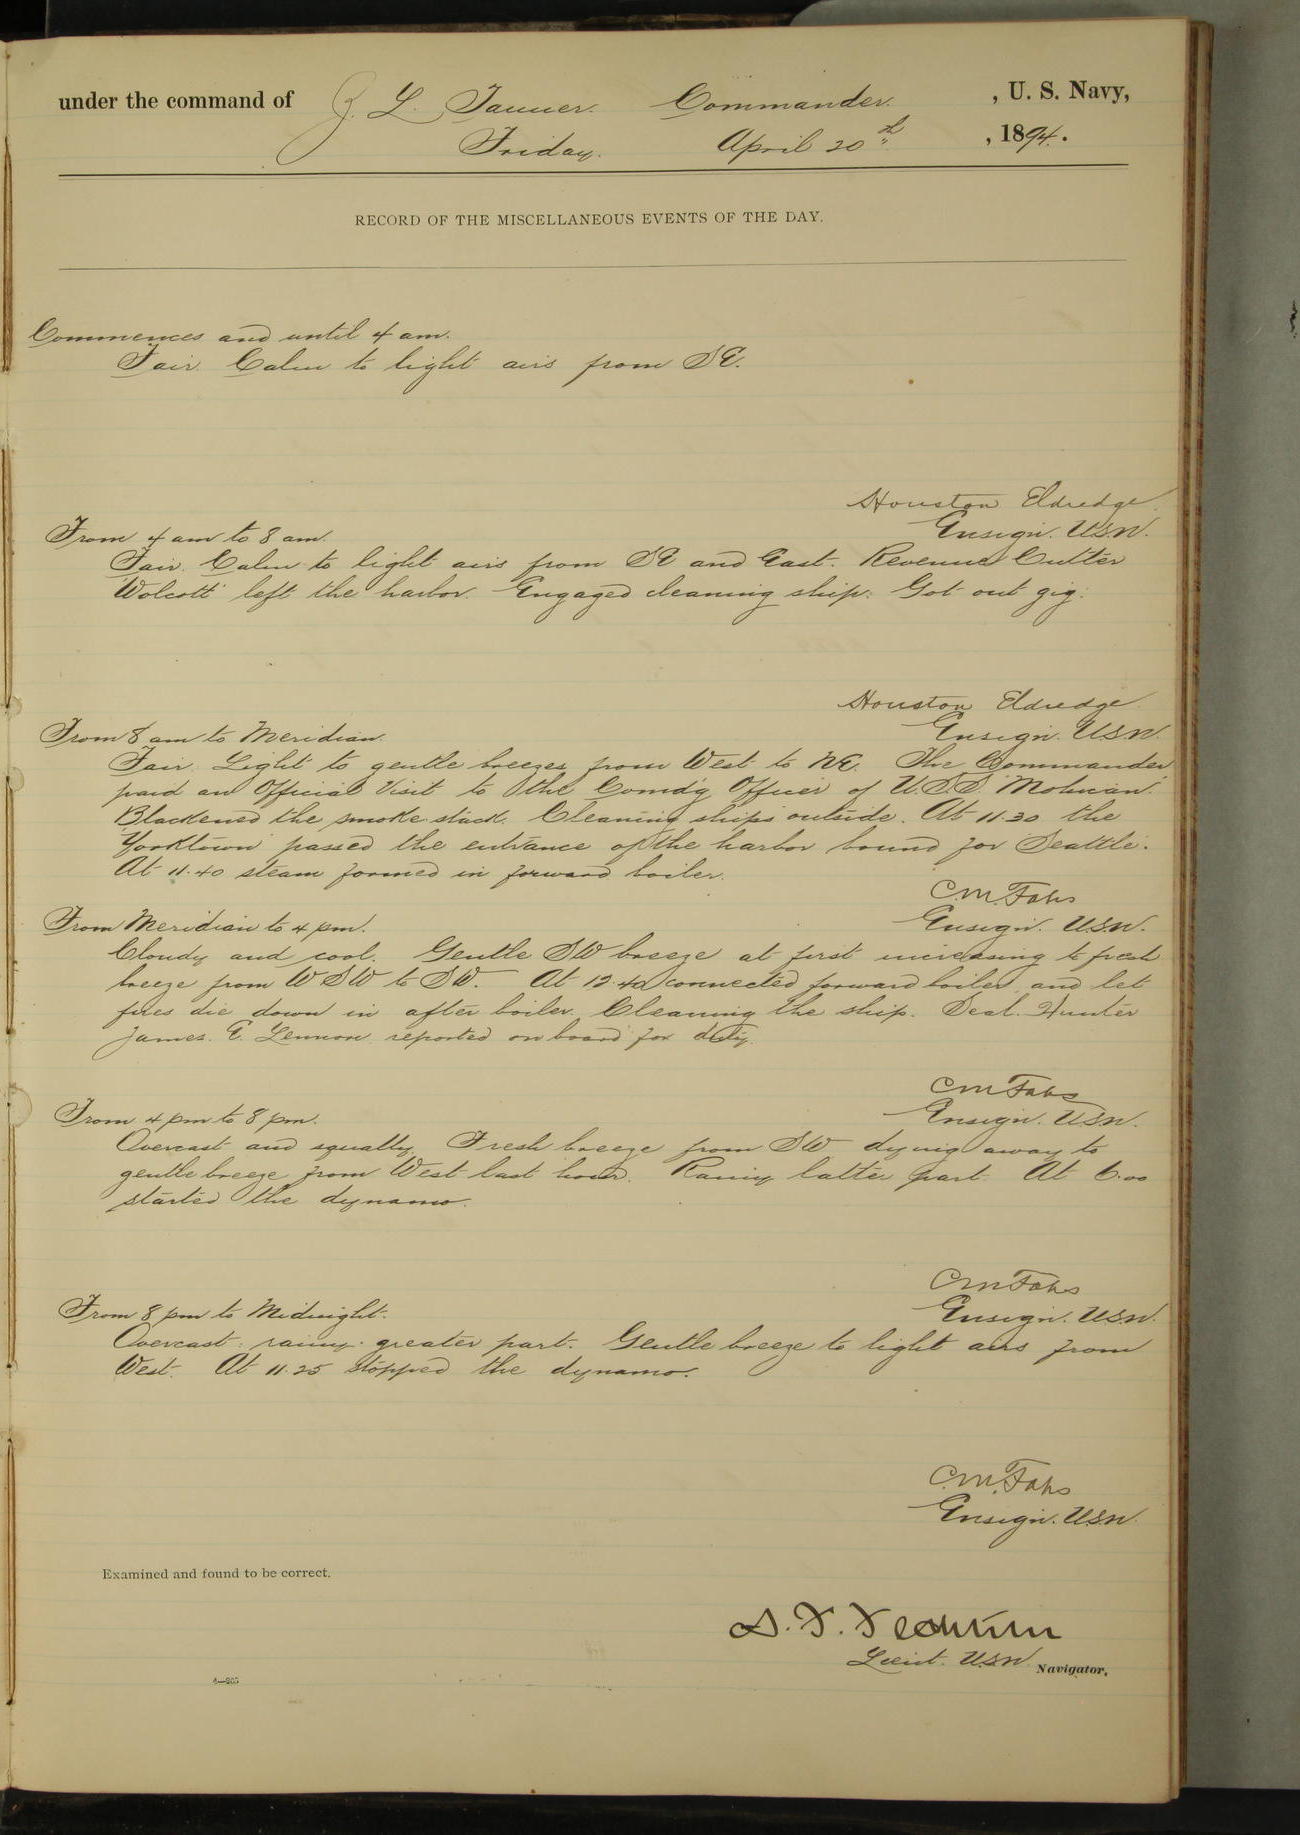 under the command of Z. L. Tanner. Commander. , U. S. Navy,
Friday. April 20th , 1894.
RECORD OF THE MISCELLANEOUS EVENTS OF THE DAY.
Commences and until 4 am.
Fair. Calm to light airs from SE.
Houston Eldredge.
Ensign. USN.
From 4 am to 8 am.
Fair. Calm to light airs from SE and East. Revenue Cutter
"Wolcott" left the harbor. Engaged cleaning ship. Got out gig.
Houston Eldredge
Ensign. USN.
From 8 am to Meridian.
Fair. Light to gentle breezes from West to NE. The Commander
paid an Official Visit to the Comd'g Officer of U.S.S. "Mohican".
Blackened the smoke stack. Cleaning ships outside. At 11.30 the
"Yorktown" passed the entrance of the harbor bound for Seattle.
At 11.40 steam formed in forward boiler.
C.M. Fahs
Ensign. USN.
From Meridian to 4 pm.
Cloudy and cool. Gentle SW breeze at first increasing to fresh
breeze from WSW to SW. At 12.40 connected forward boiler and let
fires die down in after boiler. Cleaning the ship. Seal Hunter
James. E. Lennon reported on board for duty.
CM Fahs
Ensign. USN.
From 4 pm to 8 pm.
Overcast and squally. Fresh breeze from SW dying away to
gentle breeze from West last hour. Rainy latter part. At 6.00
started the dynamo.
CM Fahs
Ensign. USN.
From 8 pm to Midnight.
Overcast. rainy. greater part. Gentle breeze to light airs from
West. At 11.25 stopped the dynamo.
C.M. Fahs
Ensign. USN.
Examined and found to be correct.
Lieut. USN. Navigator.